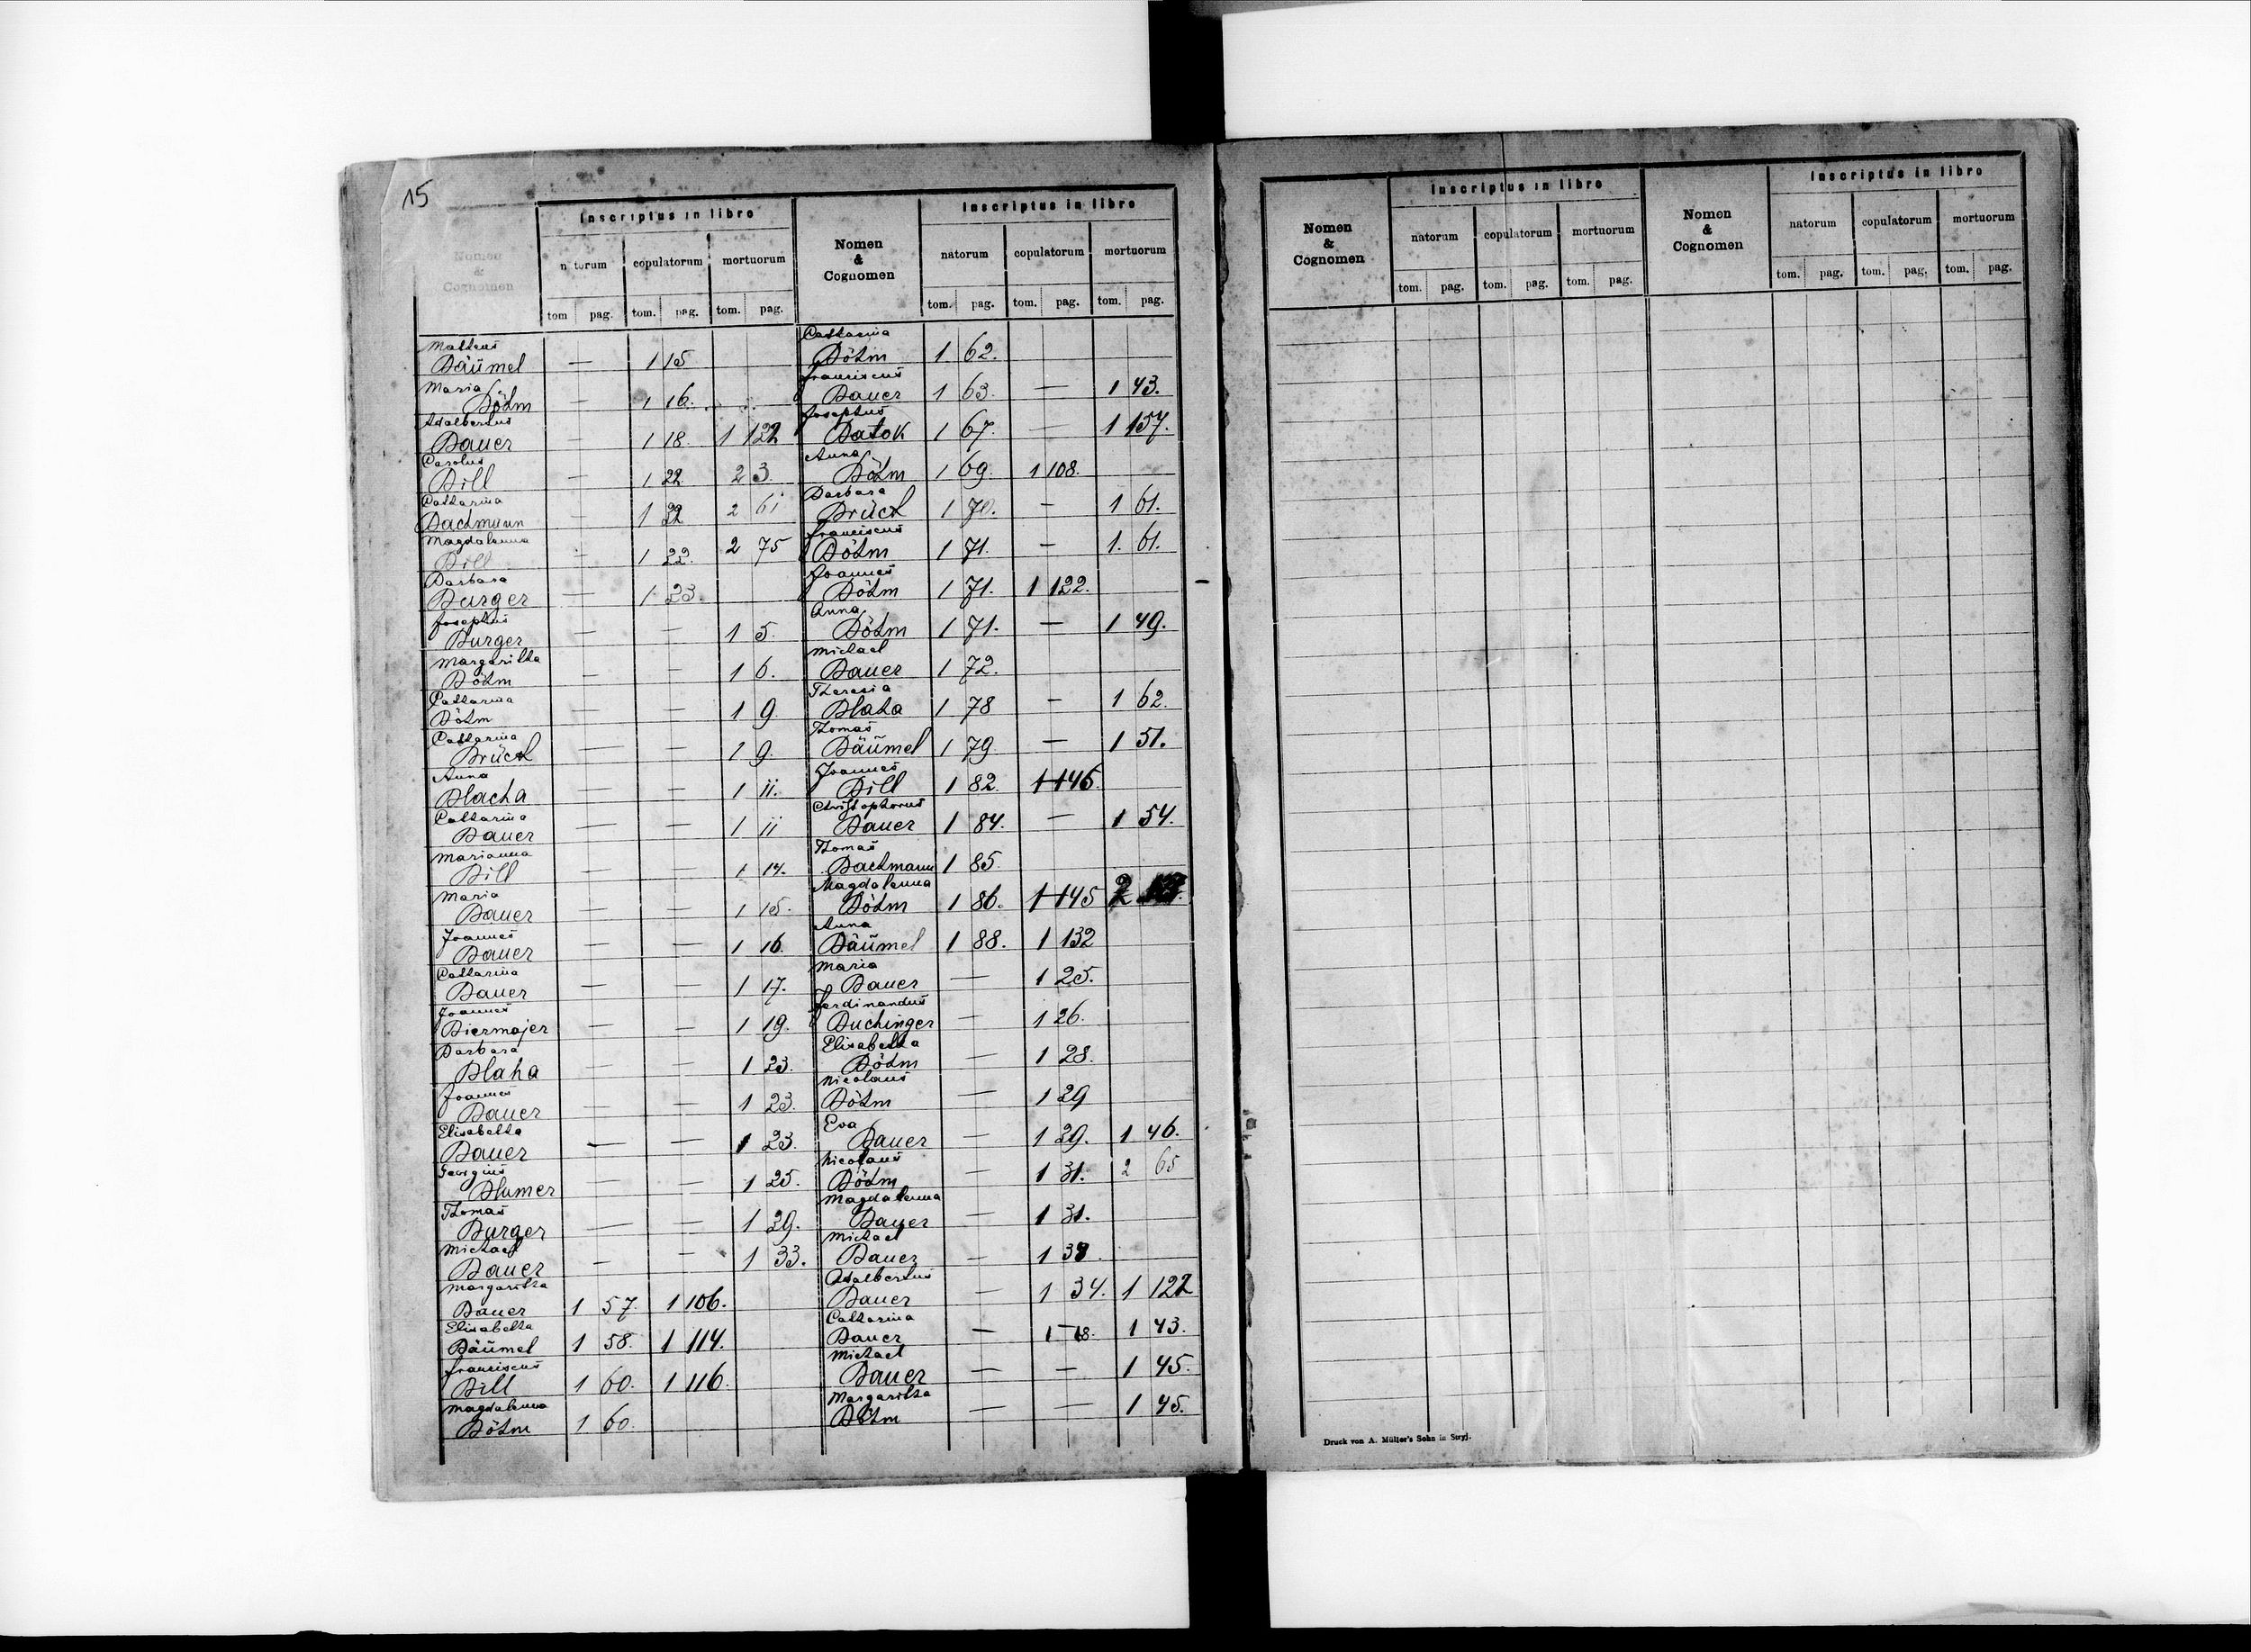 15
Nomen
&
Cognomen
Inscriptus in libro
natorum copulatorum mortuorum
tom. pag. tom. pag. tom. pag.
Matheus
Bäumel — 1 15
Maria
Böhm — 1 16.
Adalbertus
Bauer — 1 18 1 122
Carolus
Bill — 1 22 2 3.
Catharina
Bachmann — 1 22 2 61
Magdalenna
Bill — 1 22. 2 75
Barbara
Burger — 1 23.
Josephus
Burger — — 1 5.
Margaritha
Böhm — — 1 6.
Catharina
Böhm — — 1 9.
Catharina
Brückl — — 1 9.
Anna
Blacha — — 1 11.
Catharina
Bauer — — 1 11
Marianna
Bill — — 1 14.
Maria
Bauer — — 1 15.
Joannes
Bauer — — 1 16.
Catharina
Bauer — — 1 17.
Joannes
Biermajer — — 1 19.
Barbara
Blaha — — 1 23.
Joannes
Bauer — — 1 23.
Elisabetha
Bauer — — 1 23.
Georgius
Blumer — — 1 25.
Thomas
Burger — — 1 29.
Michael
Bauer — — 1 33.
Margaritha
Bauer 1 57. 1 106.
Elisabetha
Bäumel 1 58. 1 114.
Franciscus
Bill 1 60. 1 116.
Magdalenna
Böhm 1 60.
Nomen
&
Cognomen
Inscriptus in libro
natorum copulatorum mortuorum
tom. pag. tom. pag. tom. pag.
Catharina
Böhm 1 62.
Franciscus
Bauer 1 63. — 1 43.
Josephus
Batok 1 67. — 1 157.
Anna
Böhm 1 69. 1 108.
Barbara
Brückl 1 70. — 1 61.
Franciscus
Böhm 1 71. — 1. 61.
Joannes
Böhm 1 71. 1 122.
Anna
Böhm 1 71. — 1 49.
Michael
Bauer 1 72.
Theresia
Blaha 1 78 — 1 62.
Thomas
Bäumel 1 79 — 1 51.
Joannes
Bill 1 82. 1 146.
Christophorus
Bauer 1 84. — 1 54.
Thomas
Bachmann 1 85
Magdalenna
Böhm 1 86. 1 145 2
Anna
Bäumel 1 88. 1 132
Maria
Bauer — 1 25.
Ferdinandus
Buchinger — 1 26.
Elisabetha
Böhm — 1 28.
Nicolaus
Böhm — 1 29
Eva
Bauer — 1 29. 1 46.
Nicolaus
Böhm — 1 31. 2 65
Magdalenna
Bauer — 1 31.
Michael
Bauer — 1
Adalbertus
Bauer — 1 34. 1 122
Catharina
Bauer — 1 18. 1 43.
Michael
Bauer — — 1 45.
Margaritha
Böhm — — 1 45.
Nomen
&
Cognomen
Inscriptus in libro
natorum copulatorum mortuorum
tom. pag. tom. pag. tom. pag.
Nomen
&
Cognomen
Inscriptus in libro
natorum copulatorum mortuorum
tom. pag. tom. pag. tom. pag.
Druck von A. Müller's Sohn in Stryj.